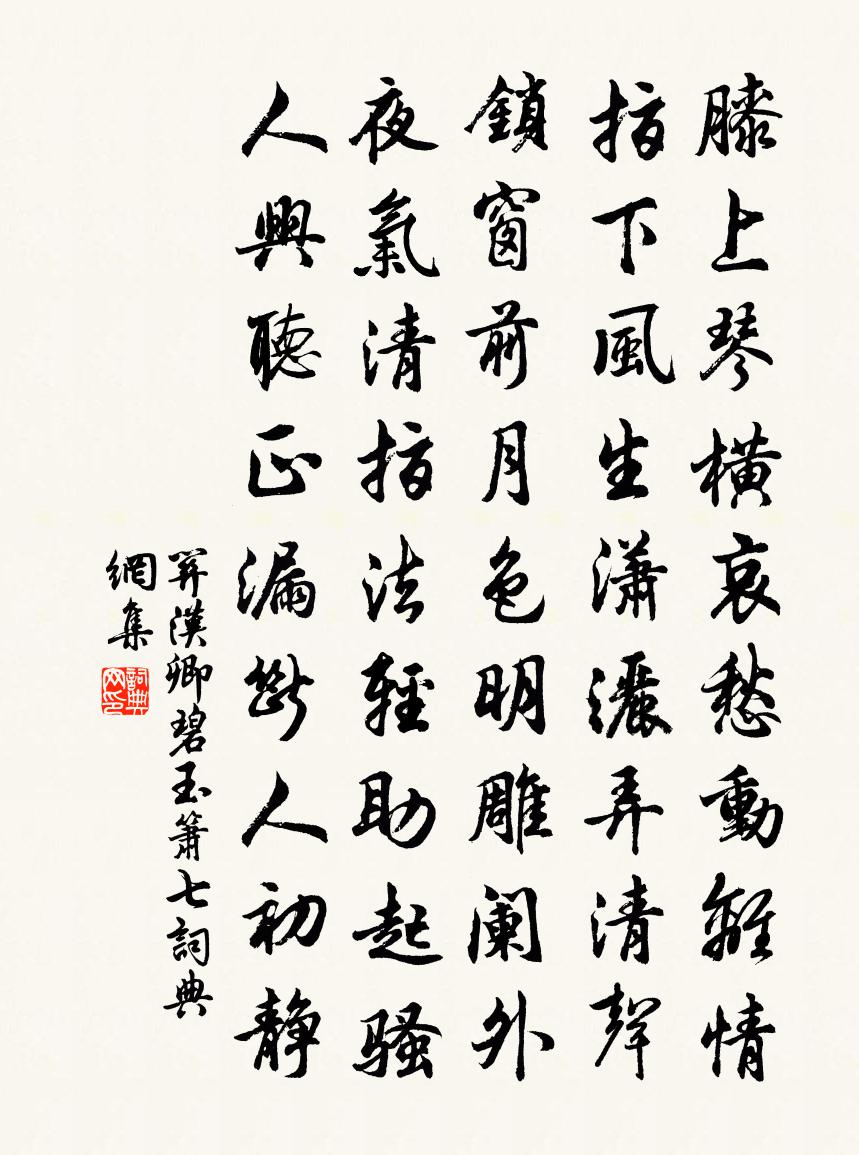 膝上琴橫哀愁動離情
指下風生瀟灑弄清聲
鎖窗前月色明雕闌外
夜氣清指法輕助起騷
人興聽正漏斷人初靜
關漢卿碧玉簫七詞典
網集
詞典
網印